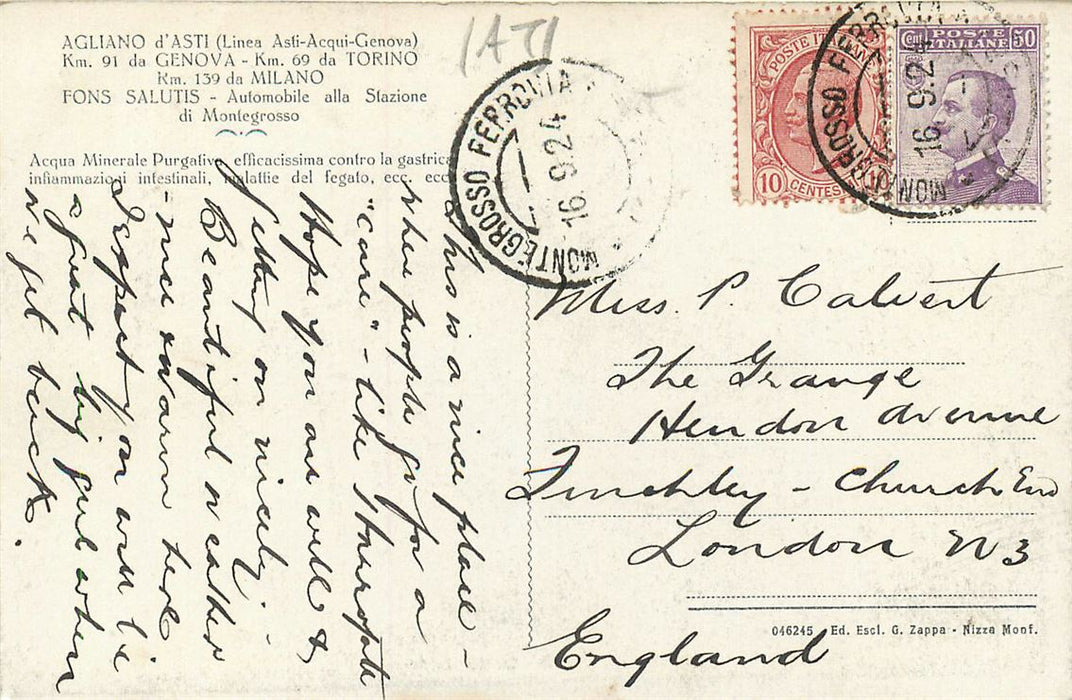 AGLIANO d'ASTI (Linea Asti-Acqui-Genova)
Km. 91 da GENOVA - Km. 69 da TORINO
Km. 139 da MILANO
FONS SALUTIS - Automobile alla Stazione
di Montegrosso
Acqua Minerale Purgativa efficacissima contro la gastrica
infiammazioni intestinali, malattie del fegato, ecc. ecc
This is a nice place -
where people go for a
"cure" - like
Hope you are well &
getting on nicely -
Beautiful weather
- nice warm here
I expect you will be
a great big girl when
we get back.
IATI
MONTEGROSSO FERROVIA
16 9 24
POSTE ITALIANE
10 CENTESI
MONTEGROSSO FERROVIA
16 9 24
Cent POSTE 50
ITALIANE
Miss. P. Calvert
The Grange
Hendon Avenue
Finchley - Church End
London N3
England
046245 Ed. Escl. G. Zappa - Nizza Monf.